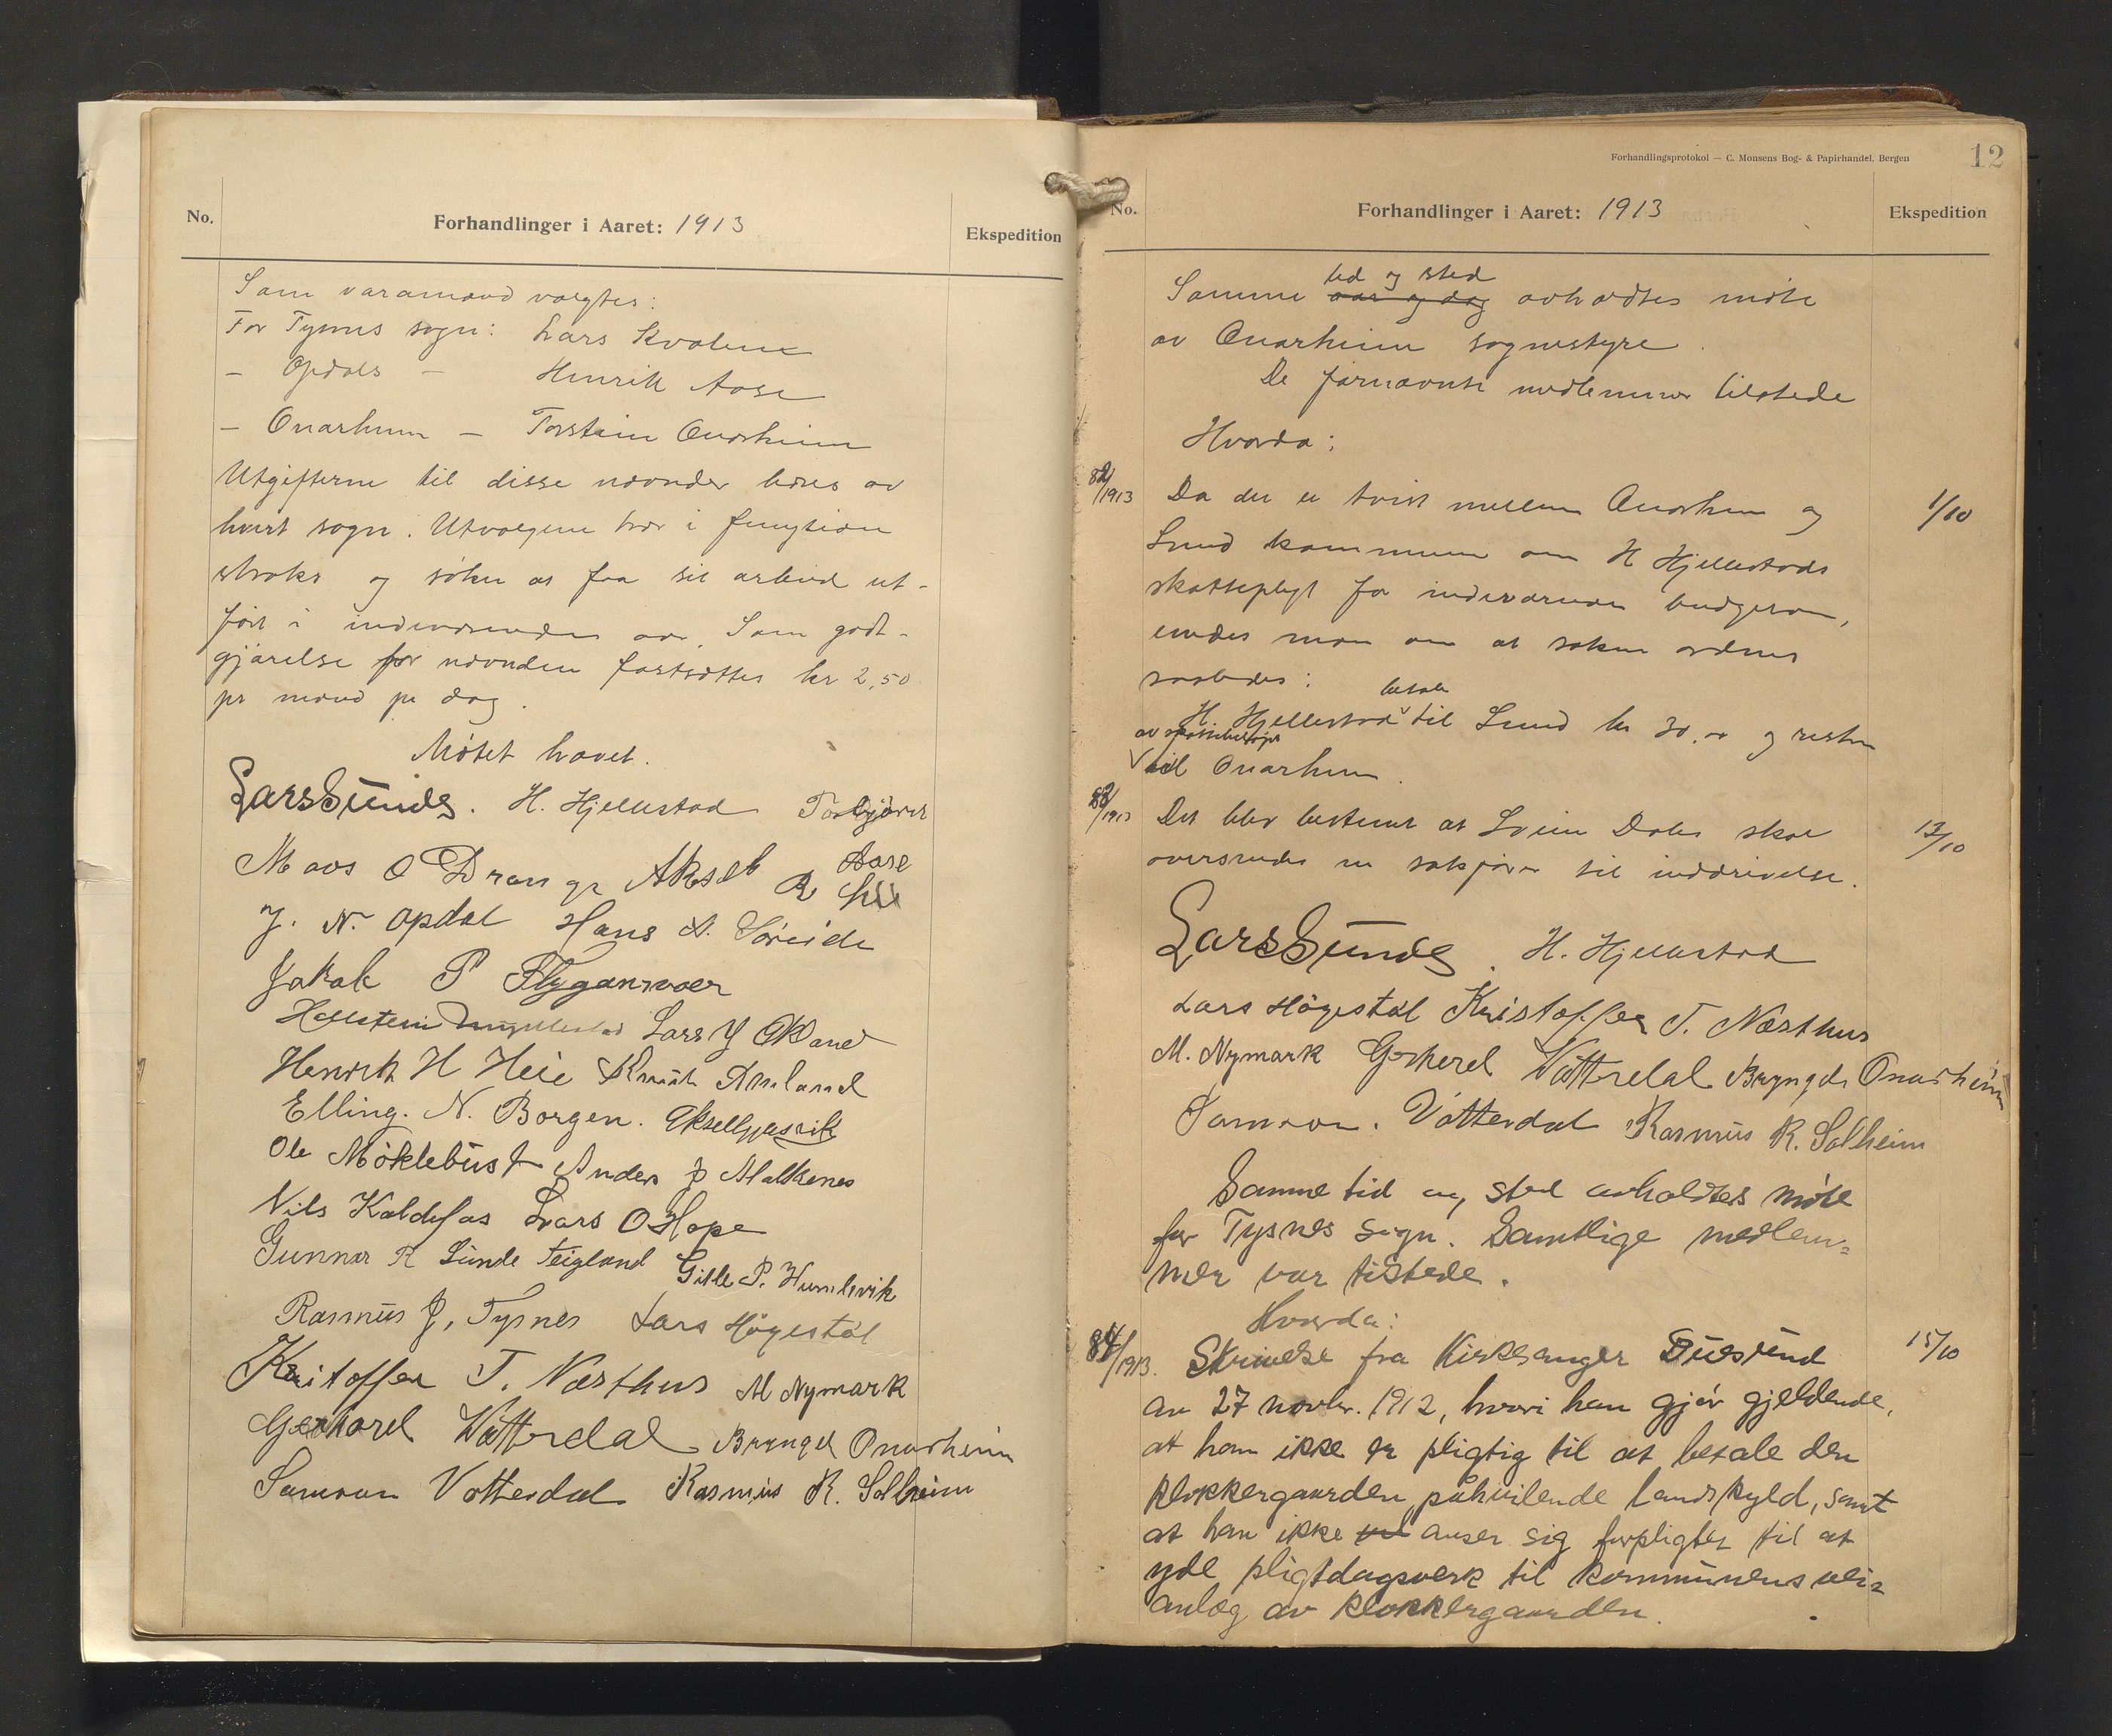 No.
Forhandlinger i Aaret: 1913
Ekspedition
Som varamænd valgtes:
For Tysnes sogn: Lars Kvalem
— Opdals — Henrik Aase
— Onarheim — Torstein Onarheim
Utgifterne til disse nævnder bæres av
hvert sogn. Utvalgene trær i function
straks og søker at faa sit arbeid ut-
ført i indeværende aar. Som godt-
gjørelse for nævnden fastsættes kr 2,50
pr mand pr dag.
Møtet hævet.
Lars Sunde. H. Hjellestad Torbjörn
Aase
Mons O Drange Aksel R
J. N. Opdal Hans A. Söreide
Jakob P Flygansvær
Halstein Lars J Økland
Henrik H Heie Knut Amland
Elling. N. Borgen. Aksel Gjøsvik
Ole Möklebust Anders J Malkenes
Nils Kaldefos Lars O Hope
Gunnar R Sunde Teigland Gitle P. Humlevik
Rasmus J. Tysnes Lars Högestöl
Kristoffer T. Næsthus M Nymark
Gerhard Vatterdal Brynjel Onarheim
Samson Vatterdal Rasmus R. Solheim
Forhandlingsprotokol — C. Monsens Bog- & Papirhandel, Bergen
12
No.
Forhandlinger i Aaret: 1913
Ekspedition
tid og sted
Samme aar og dag avholdtes møte
av Onarheim sognestyre.
De førnævnte medlemmer tilstede
Hvorda:
82/1913 Da der er tvist mellem Onarheim og 1/10
Lund kommune om H Hjellestads
skattepligt for indeværende budgetaar,
enedes man om at saken ordnes
saaledes:
betaler
H. Hjellestad til Lund kr 30,00 og resten
av
til Onarheim.
83/1913 Det blev bestemt at Svein Dales skat 13/10
oversendes en sakfører til inddrivelse.
Lars Sunde. H. Hjellestad
Lars Högestöl Kristoffer T. Næsthus
M. Nymark Gerhard Vatterdal Brynjel Onarheim
Samson. Vatterdal Rasmus R. Solheim
Samme tid og sted avholdtes møte
for Tysnes sogn. Samtlige medlem=
mer var tilstede.
Hvorda:
84/1913. Skrivelse fra kirkesanger Duesund 15/10
av 27 novbr. 1912, hvori han gjør gjeldende,
at han ikke er pligtig til at betale den
klokkergaarden påhvilende landskyld, samt
at han ikke anser sig forpligtet til at
yde pligtdagsverk til kommunens vei=
anlæg av klokkergaarden.